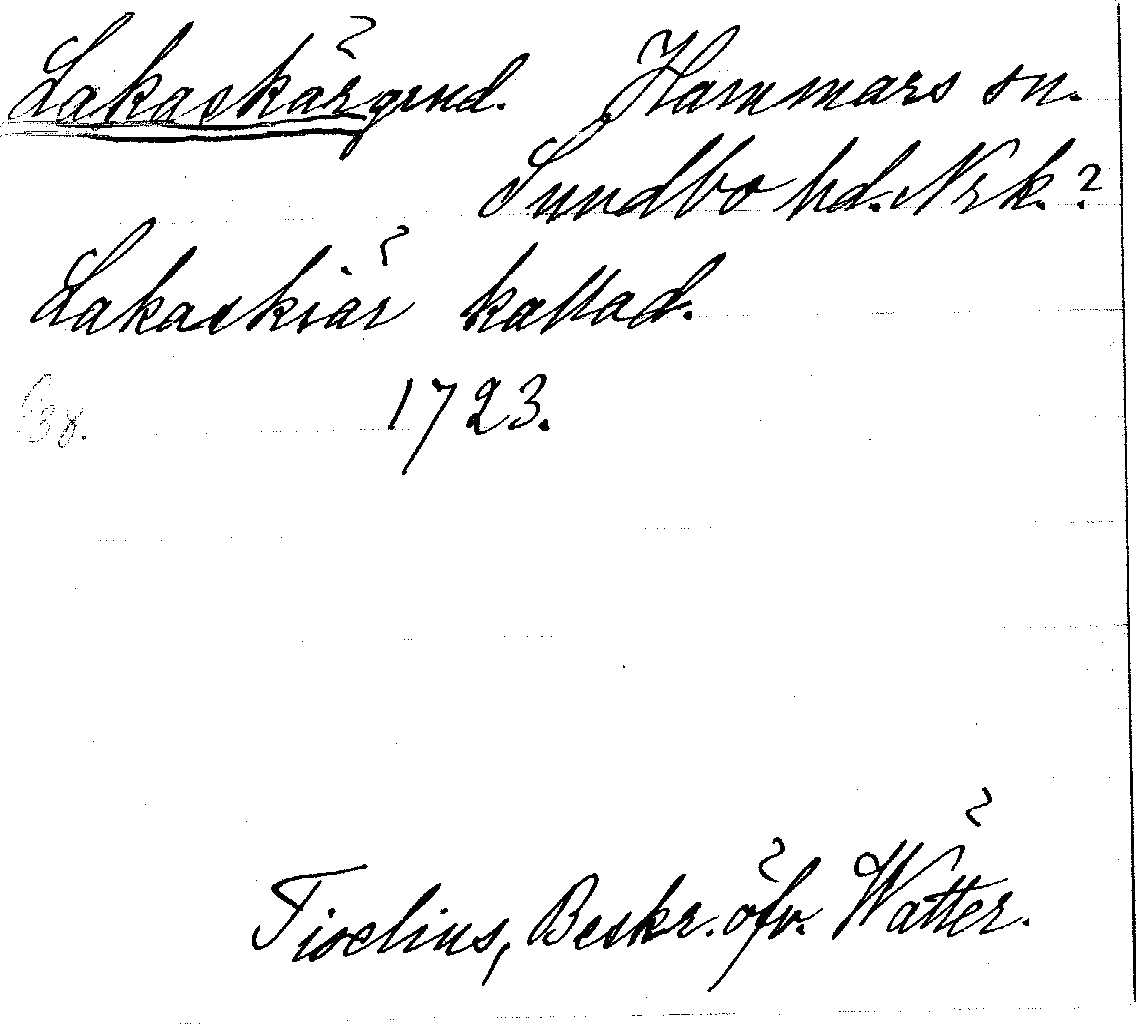 Lakaskär grnd. Hammars sn.
Sundbo hd. Nrk.?
Lakaskiär kallad.
38. 1723.
Tiselius, Beskr. öfv. Wätter.